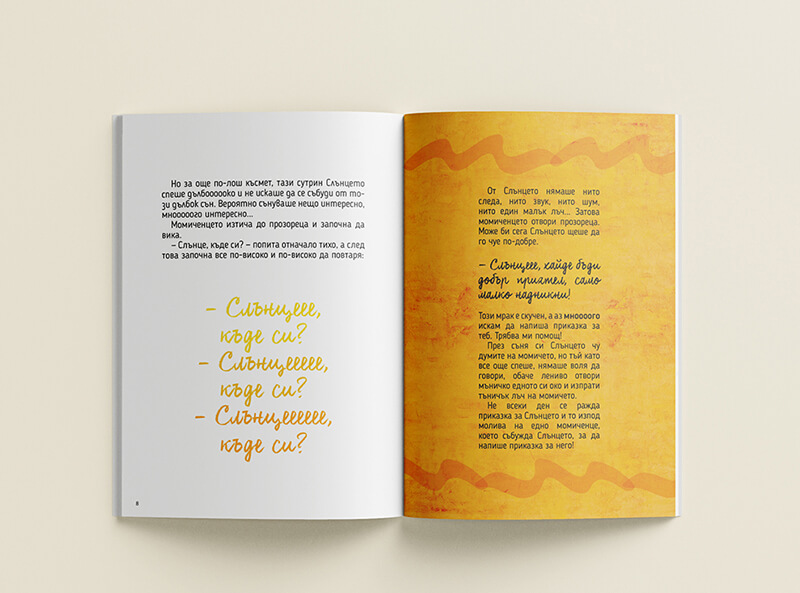 Но за още по-лош късмет, тази сутрин Слънцето
спеше дълбооооoко и не искаше да се събуди от то-
зи дълбок сън. Вероятно сънуваше нещо интересно,
мнооооого интересно...
Момиченцето изтича до прозореца и започна да
вика.
– Слънце, къде си? – попита отначало тихо, а след
това започна все по-високо и по-високо да повтаря:
– Слънцеее,
къде си?
– Слънцеееее,
къде си?
– Слънцеееееe,
къде си?
8
От Слънцето нямаше нито
следа, нито звук, нито шум,
нито един малък лъч... Затова
момиченцето отвори прозореца.
Може би сега Слънцето щеше да
го чуе по-добре.
– Слънцеее, хайде бъди
добър приятел, само
малко надникни!
Този мрак е скучен, а аз мноооого
искам да напиша приказка за
теб. Трябва ми помощ!
През съня си Слънцето чу
думите на момичето, но тъй като
все още спеше, нямаше воля да
говори, обаче лениво отвори
мъничко едното си око и изпрати
тъничък лъч на момичето.
Не всеки ден се ражда
приказка за Слънцето и то изпод
молива на едно момиченце,
което събужда Слънцето, за да
напише приказка за него!